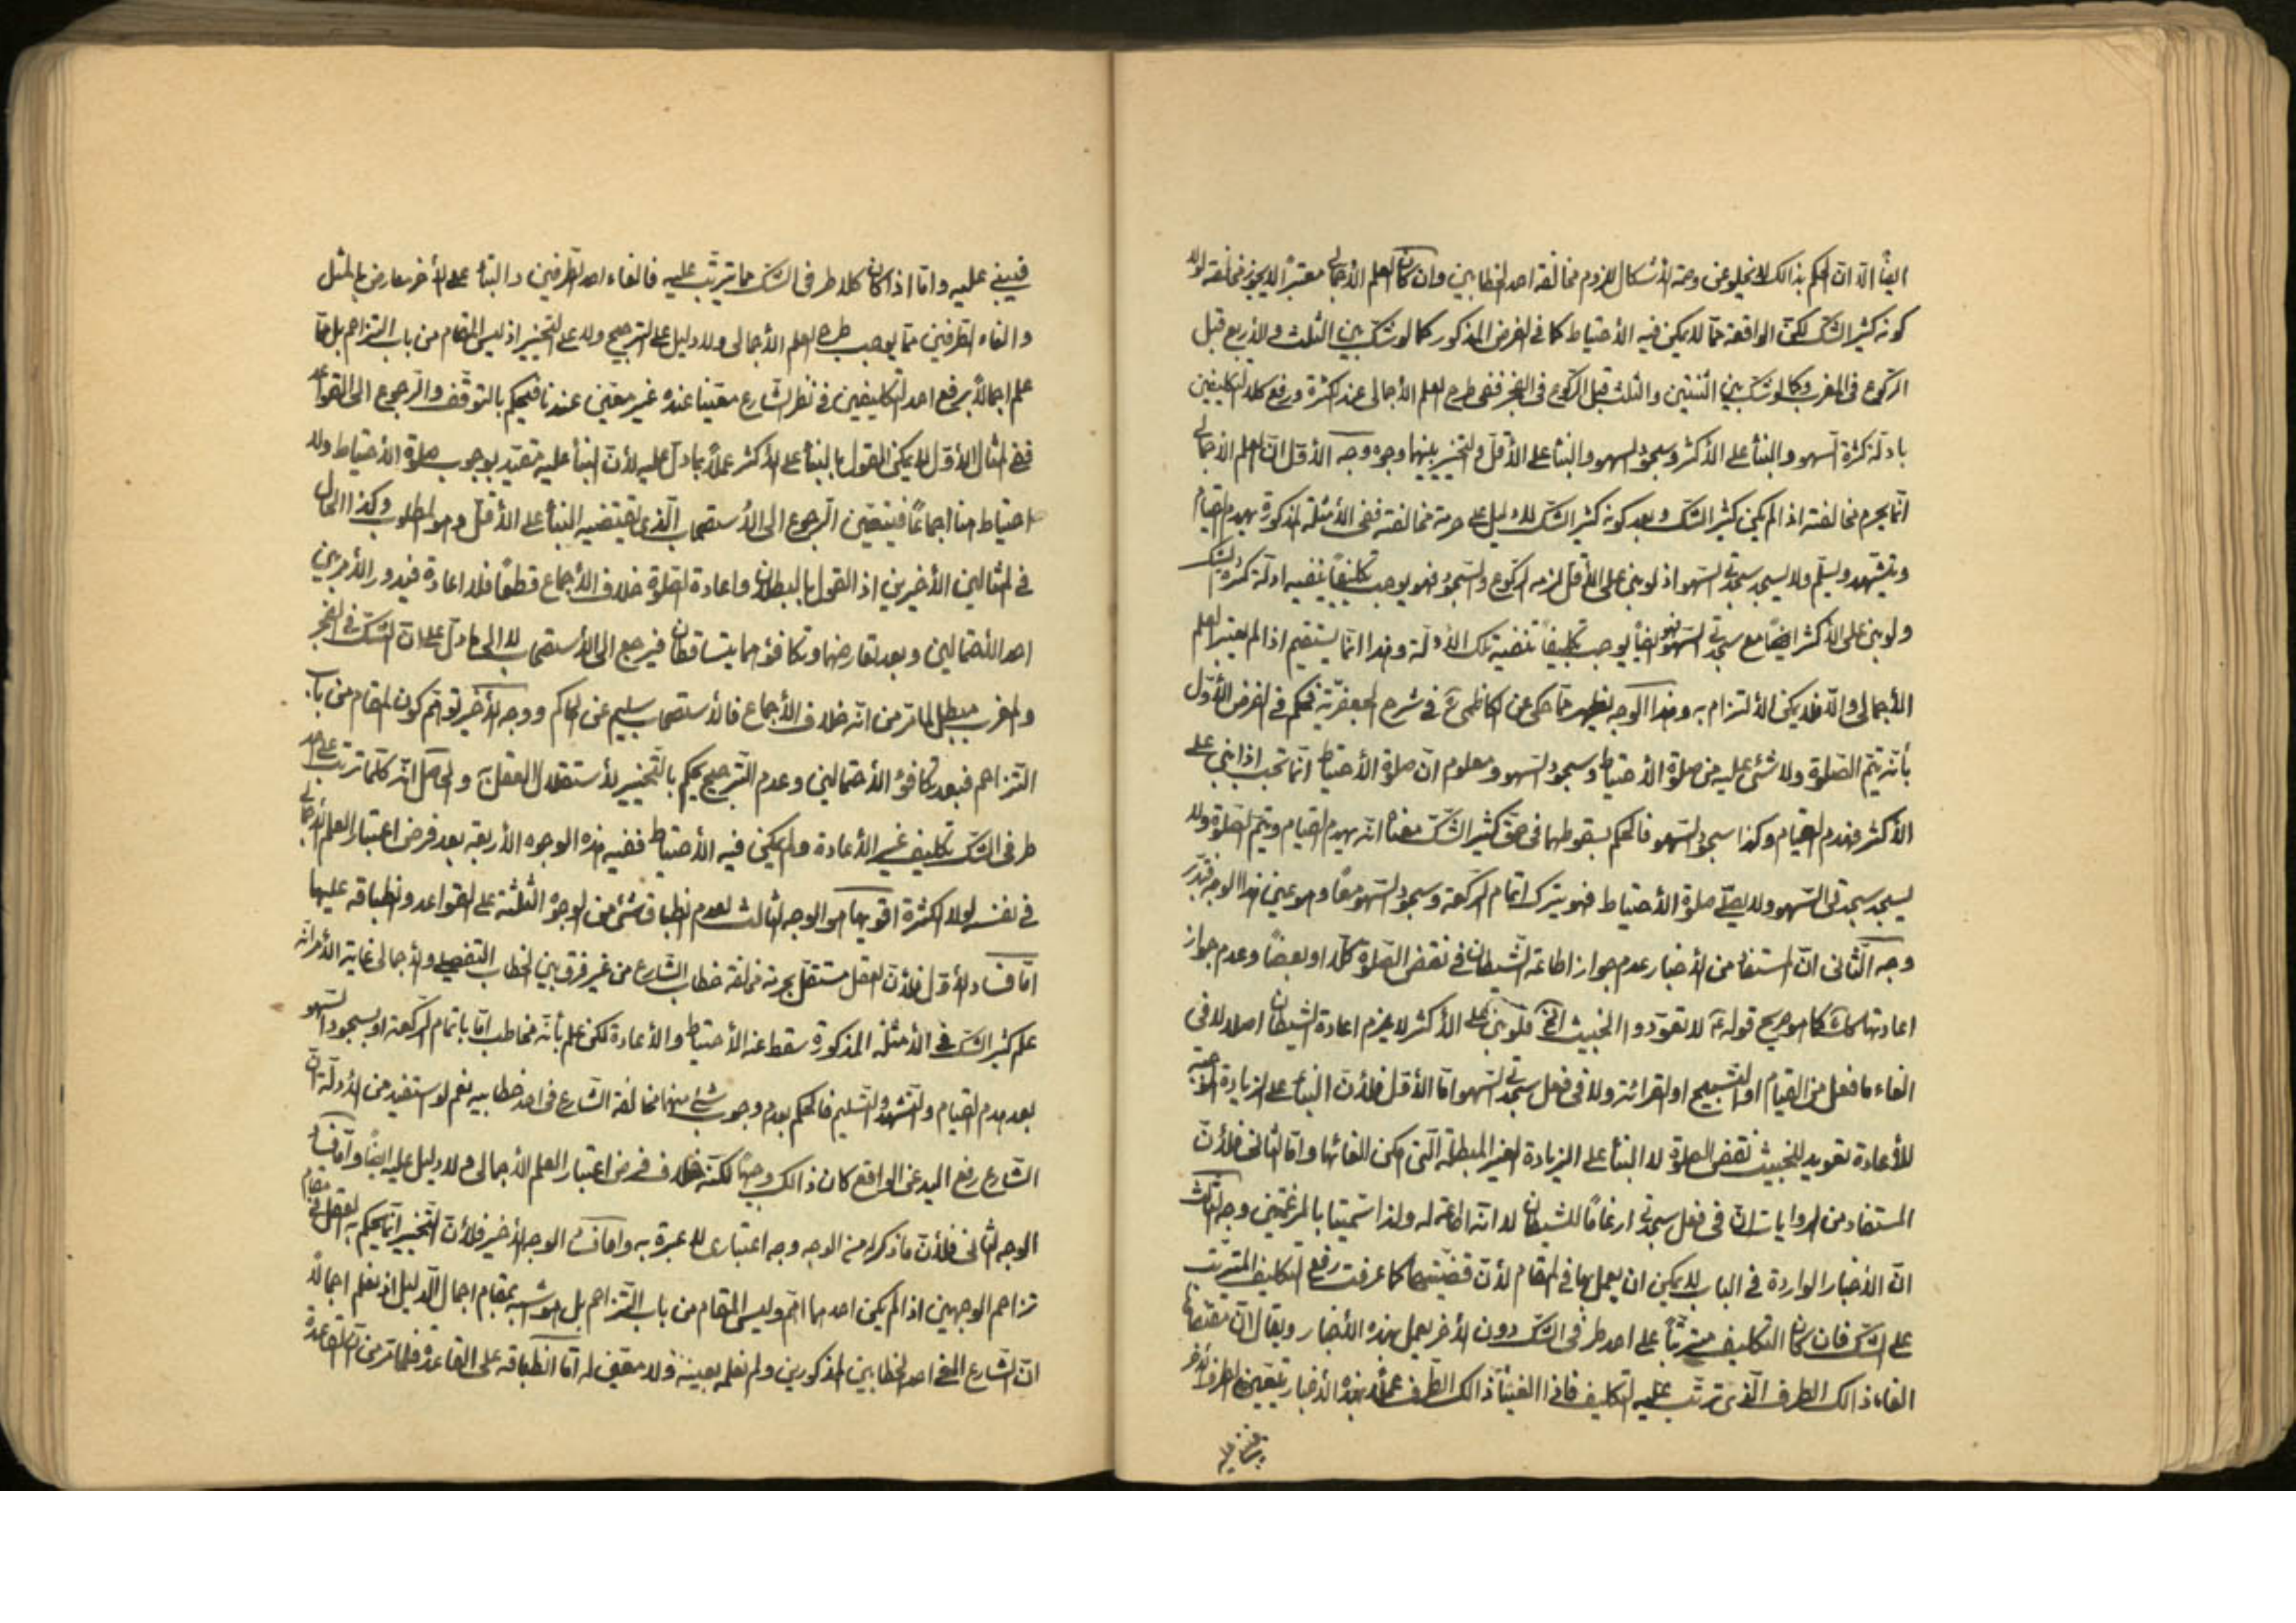 ايضًا الّا انّ الحكم بذالك لا يخلو عن وجه الأشكال للزوم مخالفة احد الخطابين وان كان العلم الأجمالى معتبرًا لا يجوز مخالفته لولا
كونه كثير الشكّ لكنّ الواقعة ممّا لا يمكن فيه الأحتياط كما فى الفرض المذكور كما لو شكّ بين الثلث والأربع قبل
الركوع فى المغرب وكما لو شكّ بين اثنتين والثلث قبل الركوع فى الفجر ففى طرح العلم الأجمالى عند الكثرة ورفع كلا التكليفين
بادلّة كثرة السهو والبنأ على الأكثر وسجود السهو والبنأ على الأقلّ والتخيير بينهما وجوه وجه الأوّل انّ العلم الأجمالى
انّما يحرم مخالفته اذا لم يكن كثير الشكّ وبعد كونه كثير الشكّ لا دليل على حرمة مخالفته ففى الأمثلة المذكورة يهدم القيام
ويتشهد ويسلّم ولا يسجد سجدتى السّهو اذ لو بنى على الأقلّ لزمه الركوع والسّجود فهو يوجب تكليفًا ينفيه ادلّة كثرة الشكّ
ولو بنى على الأكثر ايضًا مع سجدتى السّهو فهو ايضًا يوجب تكليفًا تنفيه تلك الأدلّة وهذا انّما يستقيم اذا لم يعتبر العلم
الأجمالى والّا فلا يمكن الألتزام به وهذا الوجه يظهر ممّا حكى عن الكاظمى ره فى شرح الجعفريّة فحكم فى الفرض الأوّل
بأنّه يتمّ الصّلوة ولا شئ عليه من صلوة الأحتياط وسجود السّهو ومعلوم انّ صلوة الأحتياط انّما تجب اذا بنى على
الأكثر فهدم القيام وكذا سجود السّهو فالحكم بسقوطهما فى حقّ كثير الشكّ معناه انّه يهدم القيام ويتمّ الصّلوة ولا
يسجد سجدتى السّهو ولا يصلّى صلوة الأحتياط فهو يترك اتمام الركعة وسجود السّهو معًا وهو عين هذا الوجه فتدبّر
وجه الثّانى انّ المستفاد من الأخبار عدم جواز اطاعة الشّيطان فى نقض الصّلوة كلًّا او بعضًا وعدم جواز
اعادتها كما هو صريح قوله ع لا تعوّدوا الخبيث الخ فلو بنى على الأكثر لا يلزم اعادة الشيطان اصلا لا فى
الغاء ما فعل من القيام او التسبيح او القرائة ولا فى فعل سجدتى السّهو امّا الأوّل فلأنّ البنأ على الزيادة الموجبة
للأعادة تعويد للخبيث نقض الصلوة لا البنأ على الزيادة الغير المبطلة الّتى امكن الغائها وامّا الثانى فلأنّ
المستفاد من الروايات انّ فى فعل سجدتى ارغامًا للشيطان لا انّه اطاعة له ولذا سمّيتا بالمرغمتين وجه الثّالث
انّ الأخبار الواردة فى الباب لا يمكن ان يعمل بها فى المقام لأنّ قضيّتها كما عرفت رفع التكليف المترتّب
على الشكّ فان كان التكليف مترتّبًا على احد طرفى الشكّ دون الأخر يعمل بهذه الأخبار ويقال انّ مقتضاها
الغاء ذالك الطرف الّذى ترتّب عليه التكليف فاذا الغينا ذالك الطّرف عملًا بهذه الأخبار يتعيّن الطرف الأخر
فيبنى عليه
فيبنى عليه وامّا اذا كان كلا طرفى الشكّ ممّا يترتّب عليه فالغاء احد الطرفين والبنأ على الأخر معارض بالمثل
والغاء الطّرفين ممّا يوجب طرح العلم الأجمالى ولا دليل على الترجيح ولا على التخيير اذ ليس المقام من باب التزاحم بل ممّا
علم اجمالًا برفع احد التكليفين فى نظر الشارع معيّنا عنده غير معيّن عندنا فيحكم بالتوقّف والرجوع الى القواعد
ففى المثال الأوّل لا يمكن القول بالبنأ على الأكثر عملًا بما دلّ عليه لأنّ البنأ عليه مقيّد بوجوب صلوة الأحتياط ولا
احتياط هنا اجماعًا فيتعيّن الرجوع الى الأستصحاب الّذى يقتضيه البنأ على الأقلّ وهو المطلوب وكذا الحال
فى المثالين الأخيرين اذ القول بالبطلان واعادة الصّلوة خلاف الأجماع قطعًا فلا اعادة فيدور الأمر بين
احد الأحتمالين وبعد تعارضهما وتكافؤهما يتساقطان فيرجع الى الأستصحاب لا الى ما دلّ على انّ الشكّ فى الفجر
والمغرب مبطل لما مرّ من انّه خلاف الأجماع فالأستصحاب سليم عن الحاكم ووجه الأخير توهّم كون المقام من باب
التزاحم فبعد تكافؤ الأحتمالين وعدم الترجيح يحكم بالتخيير لأستقلال العقل به والحاصل انّه كلّما ترتّب على احد
طرفى الشكّ تكليف غير الأعادة ولم يمكن فيه الأحتياط ففيه هذه الوجوه الأربعة بعد فرض اعتبار العلم الأجمالى
فى نفسه لولا الكثرة اقويها هو الوجه الثالث لعدم انطباق شئ من الوجوه الثلثة على القواعد وانطباقه عليها
امّا فساد الأوّل فلأنّ العقل مستقلّ بحرمة مخالفة خطاب الشّارع من غير فرق بين الخطاب التفصيلى والأجمالى غاية الأمر انّه
علم كثير الشكّ فى الأمثلة المذكورة سقط عنه الأحتياط والأعادة لكن علم بأنّه مخاطب امّا باتمام الركعة او بسجود السّهو
بعد هدم القيام والتشهّد والتسليم فالحكم بعدم وجوب شئ منهما مخالفة الشّارع فى احد خطابيه نعم لو استفيد من الأدلّة انّ
الشّارع رفع اليد عن الواقع كان ذالك وجهًا لكنّه خلاف فرض اعتبار العلم الأجمالى ولا دليل عليه ايضًا وامّا فساد
الوجه الثانى فلأنّ ما ذكر من الوجه وجه اعتبارى لا عبرة به وامّا فساد الوجه الأخير فلأنّ التخيير انّما يحكم به العقل فى مقام
تزاحم الوجهين اذا لم يكن احدهما اهمّ وليس المقام من باب التزاحم بل هو شبيه بمقام اجمال الدّليل اذ نعلم اجمالًا
انّ الشّارع الغى احد الخطابين المذكورين ولم نعلمه بعينه ولا معيّن له امّا انطباقه على القاعدة فلما مرّ من انّ القاعدة